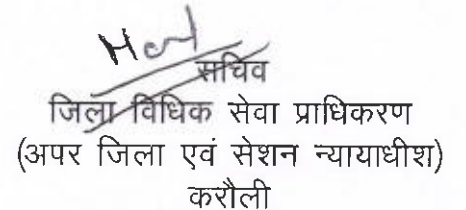 सचिव
जिला विधिक सेवा प्राधिकरण
(अपर जिला एवं सेशन न्यायाधीश)
करौली